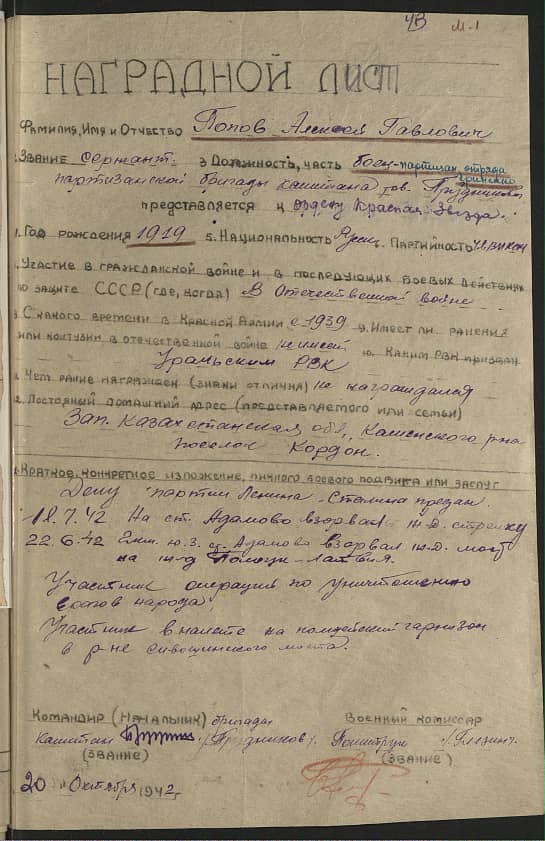 43 М-1
НАГРАДНОЙ ЛИСТ
Фамилия, Имя и Отчество Попов Алексей Павлович
Звание сержант 3 Должность, часть боец-партизан отряда
партизанской бригады капитана тов. Прудникова
представляется к ордену Красная Звезда.
1. Год рождения 1919 5. Национальность Партийность
Участие в гражданской войне и в последующих боевых действиях
по защите СССР (где, когда) В Отечественной войне
С какого времени в Красной Армии с 1939 9. Имеет ли ранения
или контузии в отечественной войне не имеет 10. Каким РВК призван
Уральским РВК
Чем ранее награжден (знаки отличия) не награждался
Постояный домашный адрес (представляемого или семьи)
Зап. Казахстанская обл., р-на
поселок Кордон.
Краткое, конкретное изложение, личного боевого подвига или заслуг
Делу партии Ленина-Сталина предан.
18.7.42 На ст. Адамово взорвал ж.д. стрелку
22.6.42 2 км. ю.з. ст. Адамово взорвал ж.д. мост
на ж-д Полоцк-Латвия.
Участник операций по уничтожению
врагов народа.
Участник в налете на полицейский гарнизон
в р-не Сивошинского моста.
Командир (Начальник) бригады Военный комиссар
капитан /Прудников/. Политрук /Глезин/.
(звание) (звание)
20 " Октября 1942 г.